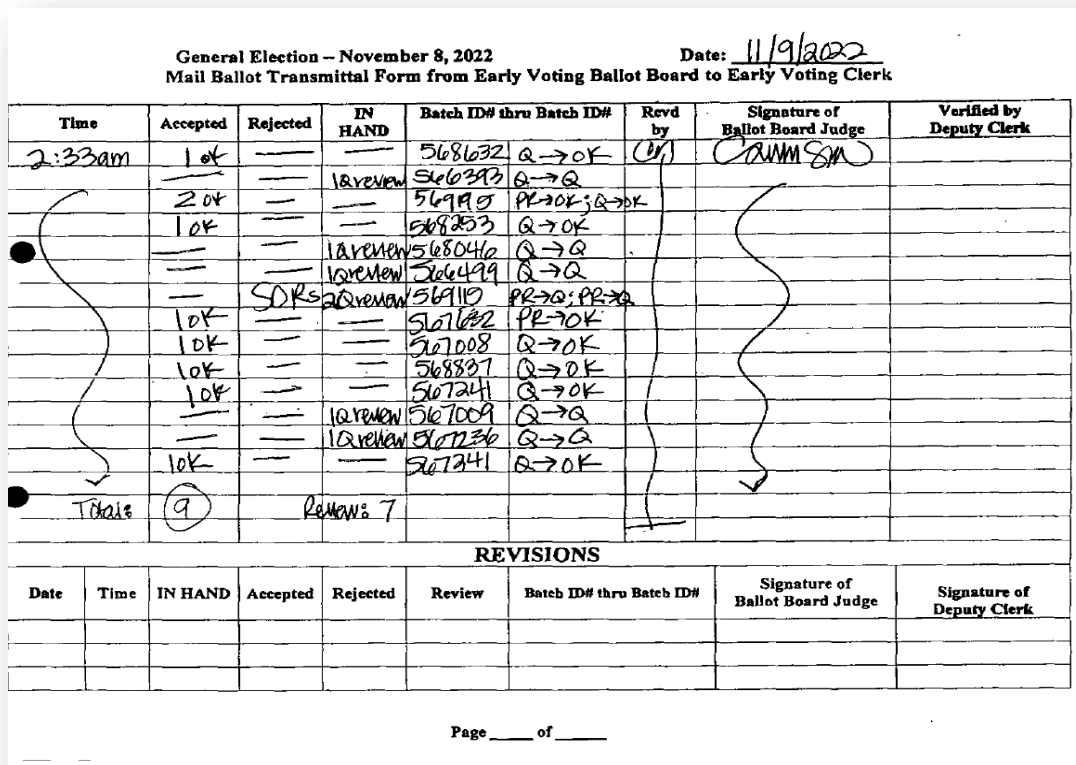 General Election – November 8, 2022 Date: 11/9/2022
Mail Ballot Transmittal Form from Early Voting Ballot Board to Early Voting Clerk
Time Accepted Rejected IN HAND Batch ID# thru Batch ID# Rcvd by Signature of Ballot Board Judge Verified by Deputy Clerk
2:33am 1 ok — — 568632 Q→OK
— — 1Q review 566393 Q→Q
2 ok — — PR→OK; Q→OK
1 OK — — 568253 Q→OK
— — 1Q review 568046 Q→Q
— — 1Q review 566499 Q→Q
— SDRs 2Q review 569115 PR→Q; PR→Q
1 OK — — 567632 PR→OK
1 OK — — 567008 Q→OK
1 OK — — 568837 Q→OK
1 OK — — 567241 Q→OK
— — 1Q review 567009 Q→Q
— — 1Q review 567236 Q→Q
1 OK — — 567341 Q→OK
Total: 9 Review: 7
REVISIONS
Date Time IN HAND Accepted Rejected Review Batch ID# thru Batch ID# Signature of Ballot Board Judge Signature of Deputy Clerk
Page ____ of ____